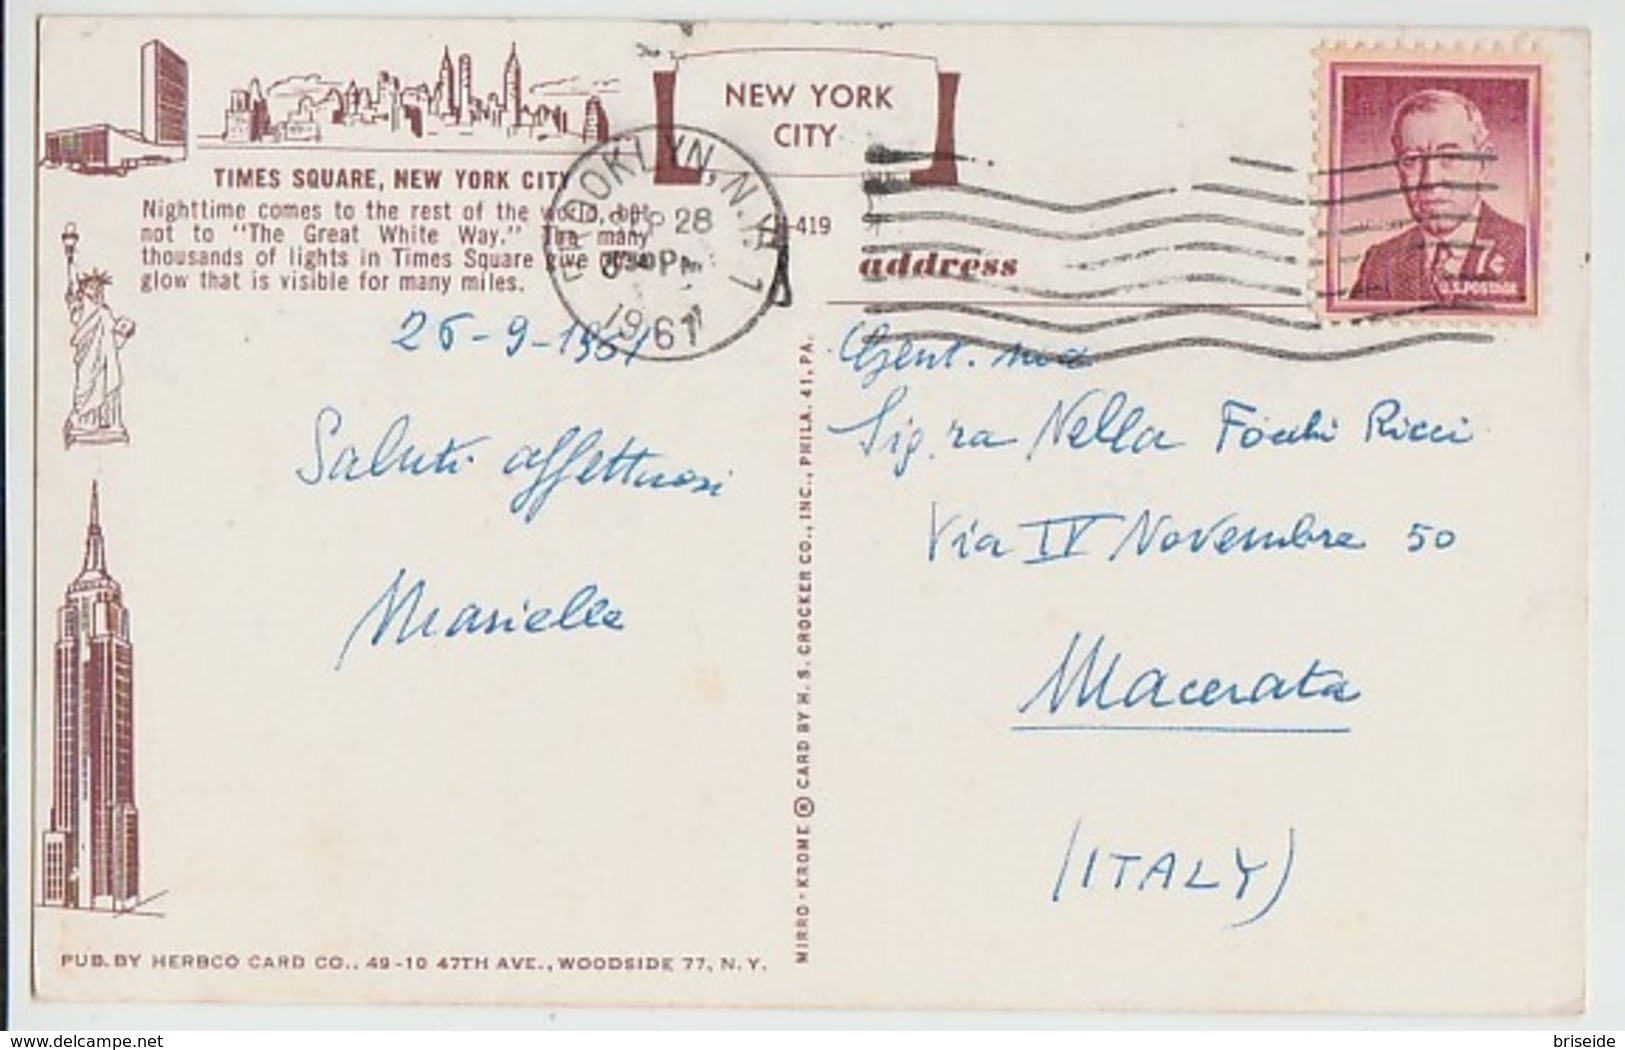 NEW YORK
CITY
TIMES SQUARE, NEW YORK CITY
Nighttime comes to the rest of the world, but
not to "The Great White Way." The many
thousands of lights in Times Square give off a
glow that is visible for many miles.
BROOKLYN, N.Y. 1
SEP 28
1961
-419
address
7¢
U.S. POSTAGE
26-9-1961
Saluti affettuosi
Mariella
Gent. ma
Sig.ra Nella Fochi Ricci
Via IV Novembre 50
Macerata
(ITALY)
MIRRO-KROME ® CARD BY H. S. CROCKER CO., INC., PHILA. 41, PA.
PUB. BY HERBCO CARD CO., 49-10 47TH AVE., WOODSIDE 77, N. Y.
delcampe.net
briseide